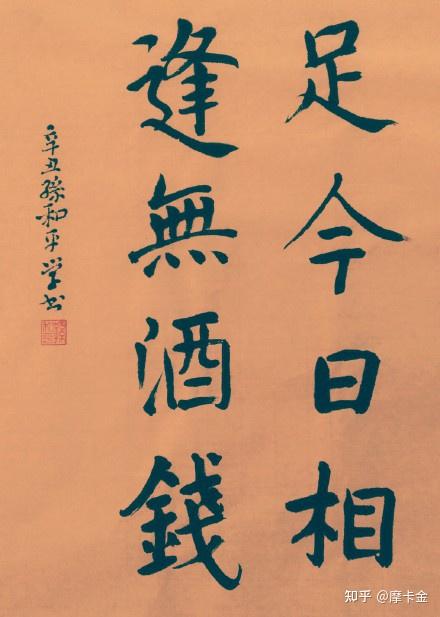 足今日相
逢無酒錢
辛丑孫和平学书
知乎 @摩卡金